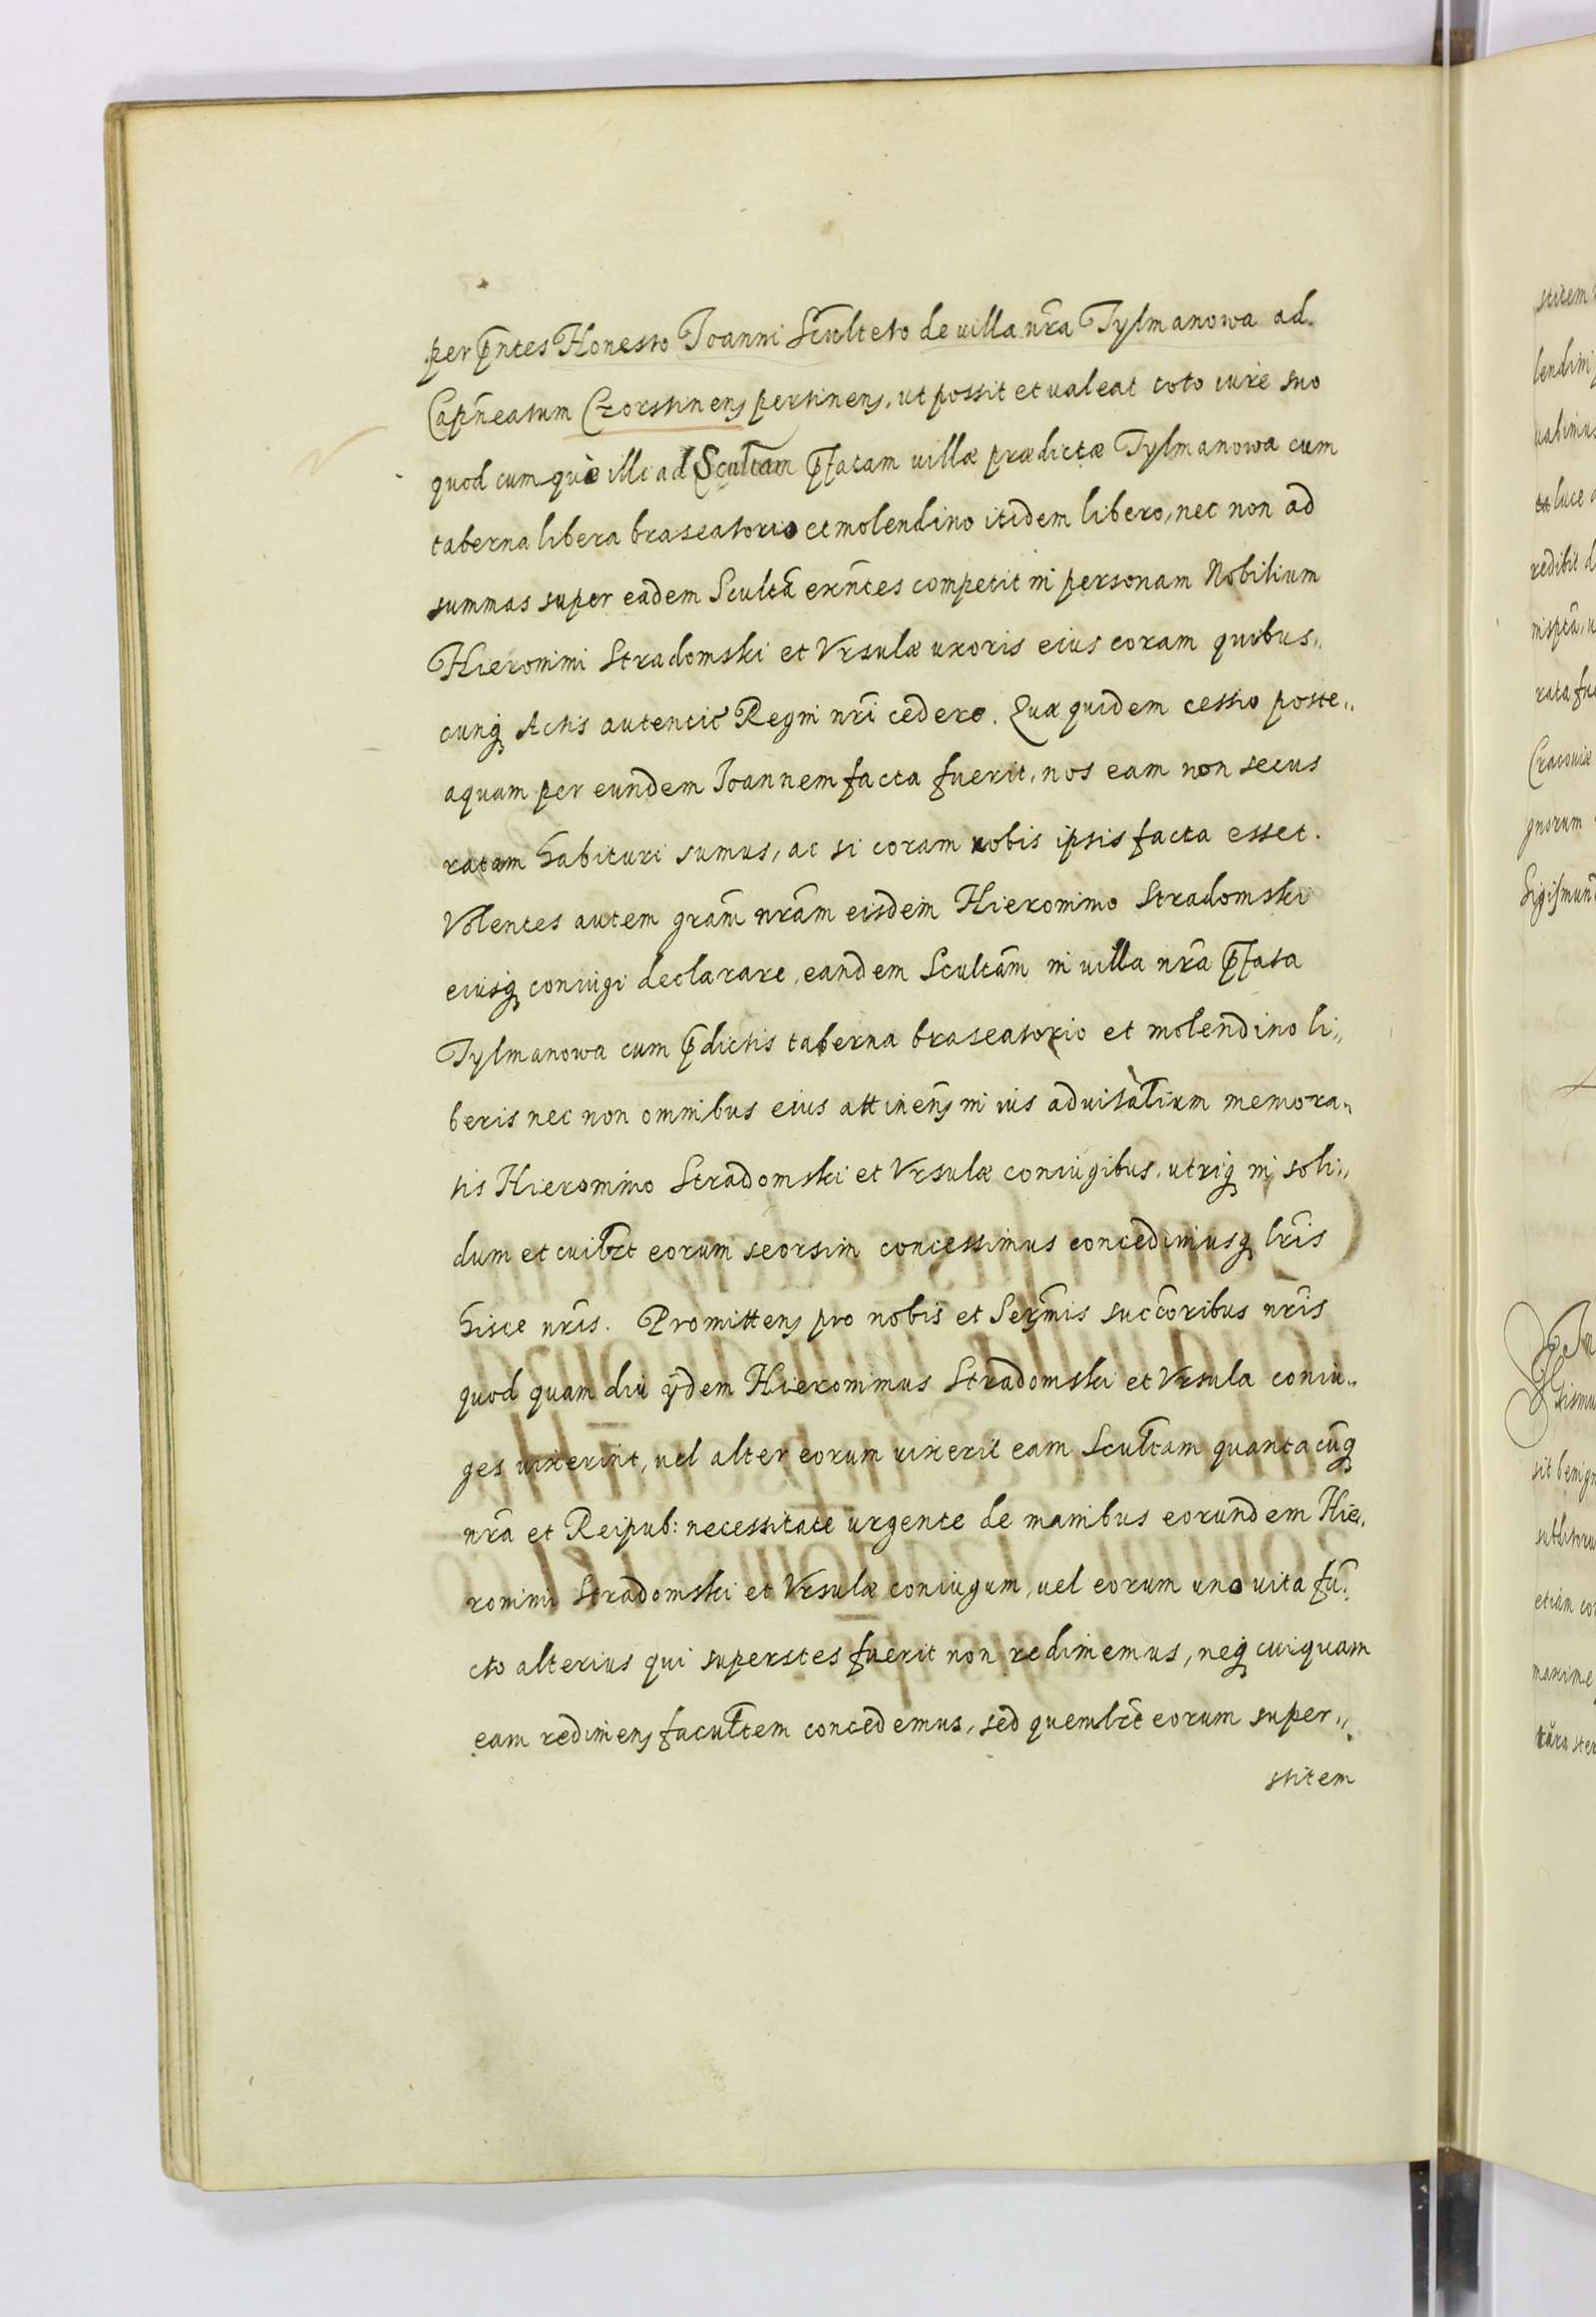 per p̄ntes Honesto Joanni Sculteto de villa nr̃a Tylmanowa ad
Capn̄eatum Czorstinenş pertinenş, ut possit et ualeat toto iure suo
quod cumque illi ad Scultam p̄fatam uillæ prædictæ Tylmanowa cum
taberna libera braseatorio et molendino itidem libero, nec non ad
summas super eadem Scultã exñtes competit in personam Nobilium
Hieronimi Stradomski et Vrsulæ uxoris eius coram quibus„
cunq̨ Actis autentic̃ Regni nr̃i cedere. Quæ quidem cessio poste„
aquam per eundem Joannem facta fuerit, nos eam non secus
ratam habituri sumus, ac si coram nobis ipsis facta esset.
Volentes autem gram̃ nram̃ eisdem Hieronimo Stradomski
eiusq̨ coniugi declarare, eandem Scultam̃ in uilla nr̃a p̄fata
Tylmanowa cum p̄dictis taberna braseatorio et molendino li„
beris nec non omnibus eius attinenş in ius aduitalium memora„
tis Hieronimo Stradomski et Vrsulæ coniugibus, utriq̨ in soli„
dum et cuilbt̃ eorum seorsim concessimus concedimusq̨ lr̃is
hisce nr̃is. Promittenş pro nobis et Serm̃is succ̃oribus nr̃is
quod quam diu ijdem Hieronimus Stradomski et Vrsula coniu„
ges uixerint, uel alter eorum uixerit eam Scultam quantacũq̨
nr̃a et Reipub: necessitate urgente de manibus eorundem Hie„
ronimi Stradomski et Vrsulæ coniugum, uel eorum uno uita fũ„
cto alterius qui superstes fuerit non redimemus, neq̨ cuiquam
eam redimenş facultem concedemus, sed quemlbt̃ eorum super„
stitem